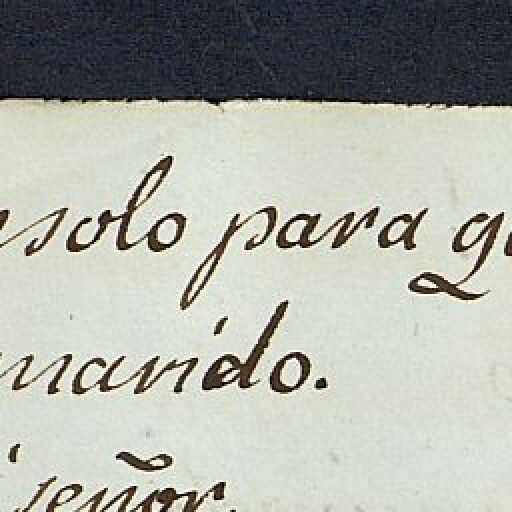 solo para
marido.
señor.